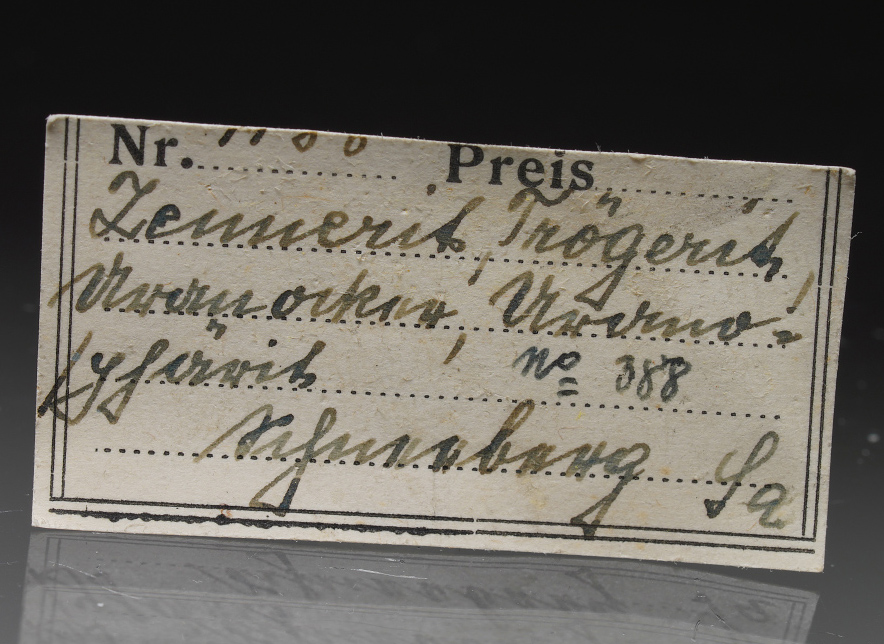 Nr. Preis
Zeunerit, Trögerit,
Uranocker, Urano-
sphärit
No 388
Schneeberg Sa